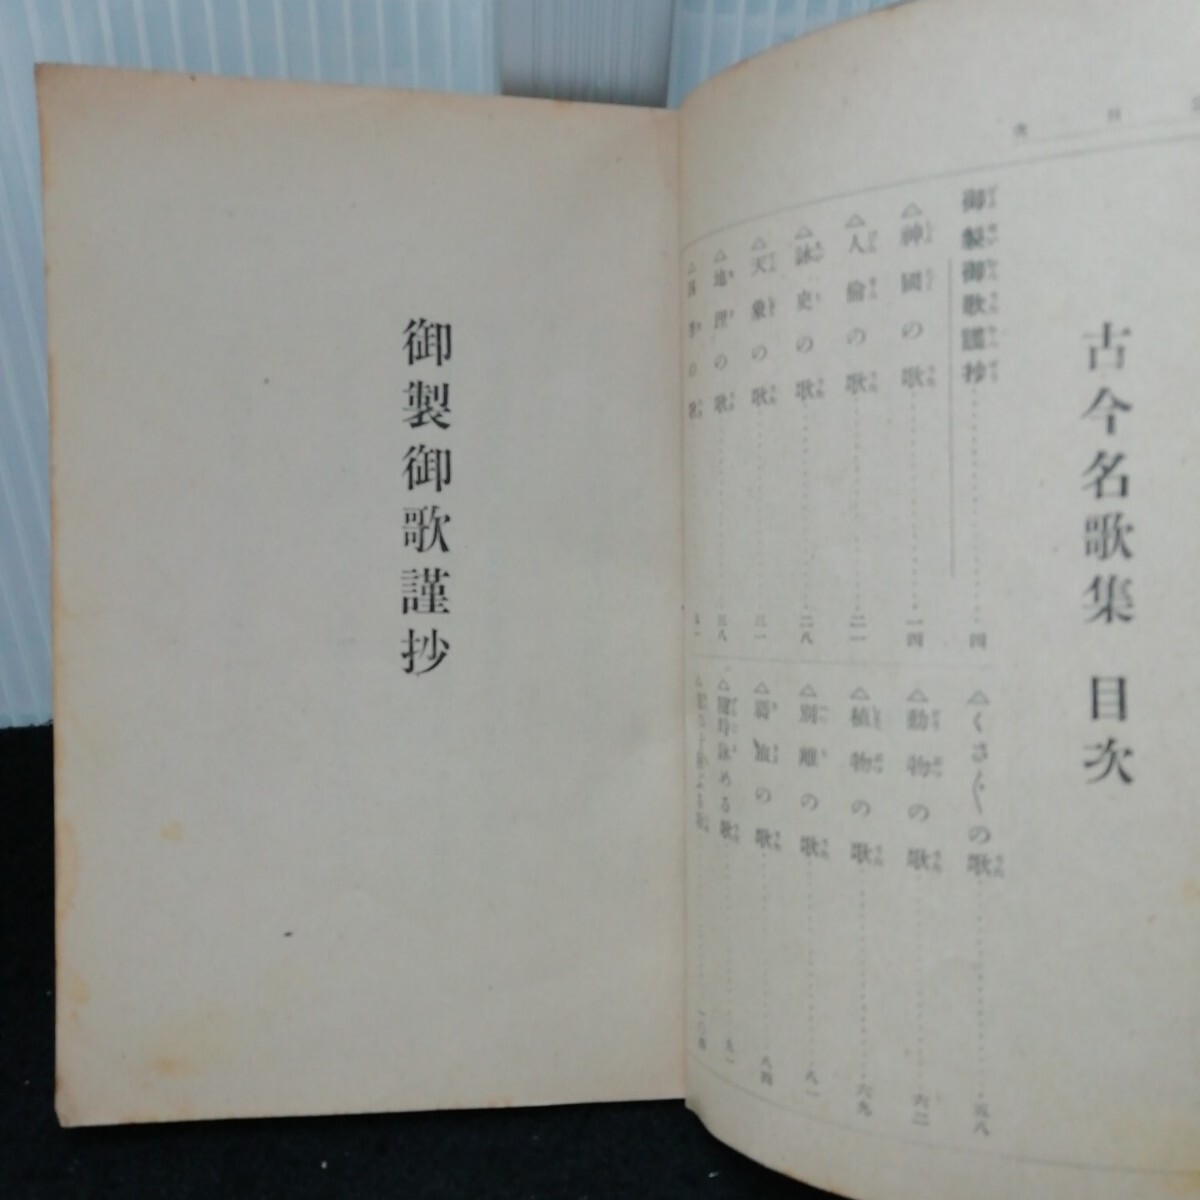 目次
古今名歌集 目次
御製御歌謹抄……四
△神國の歌……一四
△人倫の歌……二一
△詠史の歌……二八
△天象の歌……三一
△地理の歌……三八
の歌
△くさ〴〵の歌……五八
△動物の歌……六二
△植物の歌……六九
△別離の歌……八一
△羇旅の歌……八四
△随時詠める歌……九一
御製御歌謹抄